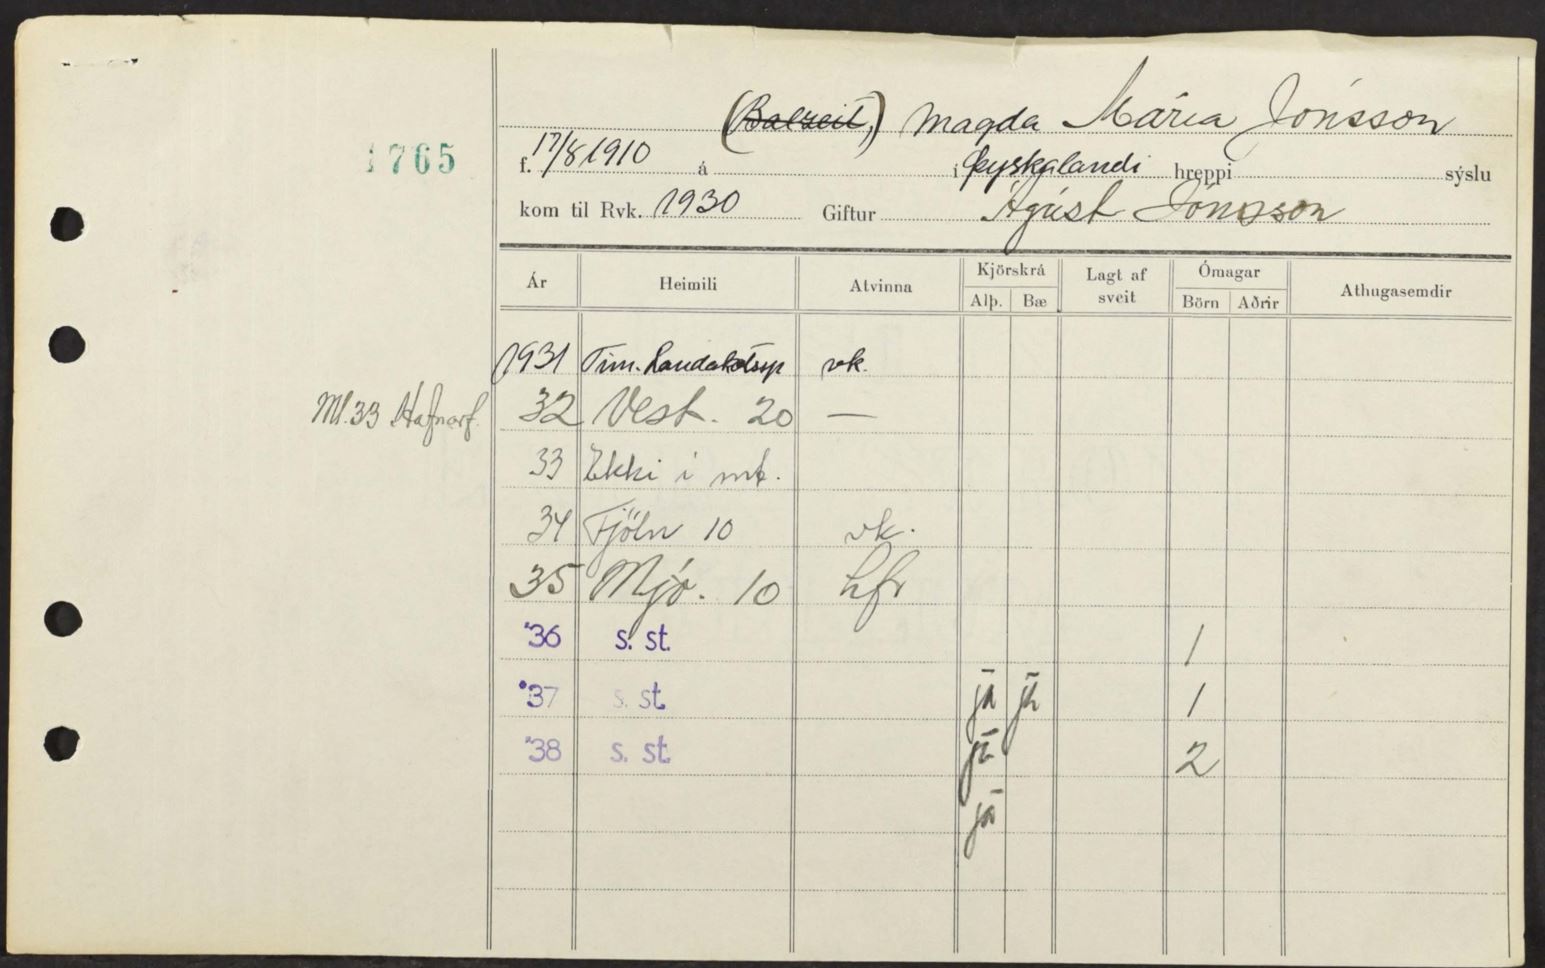 (Balzeit,) Magda María Jónsson
1765
f. 17/8 1910 á í Þyskalandi hreppi sýslu
kom til Rvk. 1930 Giftur Ágúst Jónsson
Ár Heimili Atvinna Kjörskrá Alþ. Bæ Lagt af sveit Ómagar Börn Aðrir Athugasemdir
1931 Tún. Landakotssp vk.
Ml. 33 Hafnarf. 32 Vest. 20 —
33 Ekki í mt.
34 Fjöln 10 vk.
35 Mjó. 10 hfr
'36 s. st. 1
'37 s. st. já já 1
'38 s. st. já 2
já